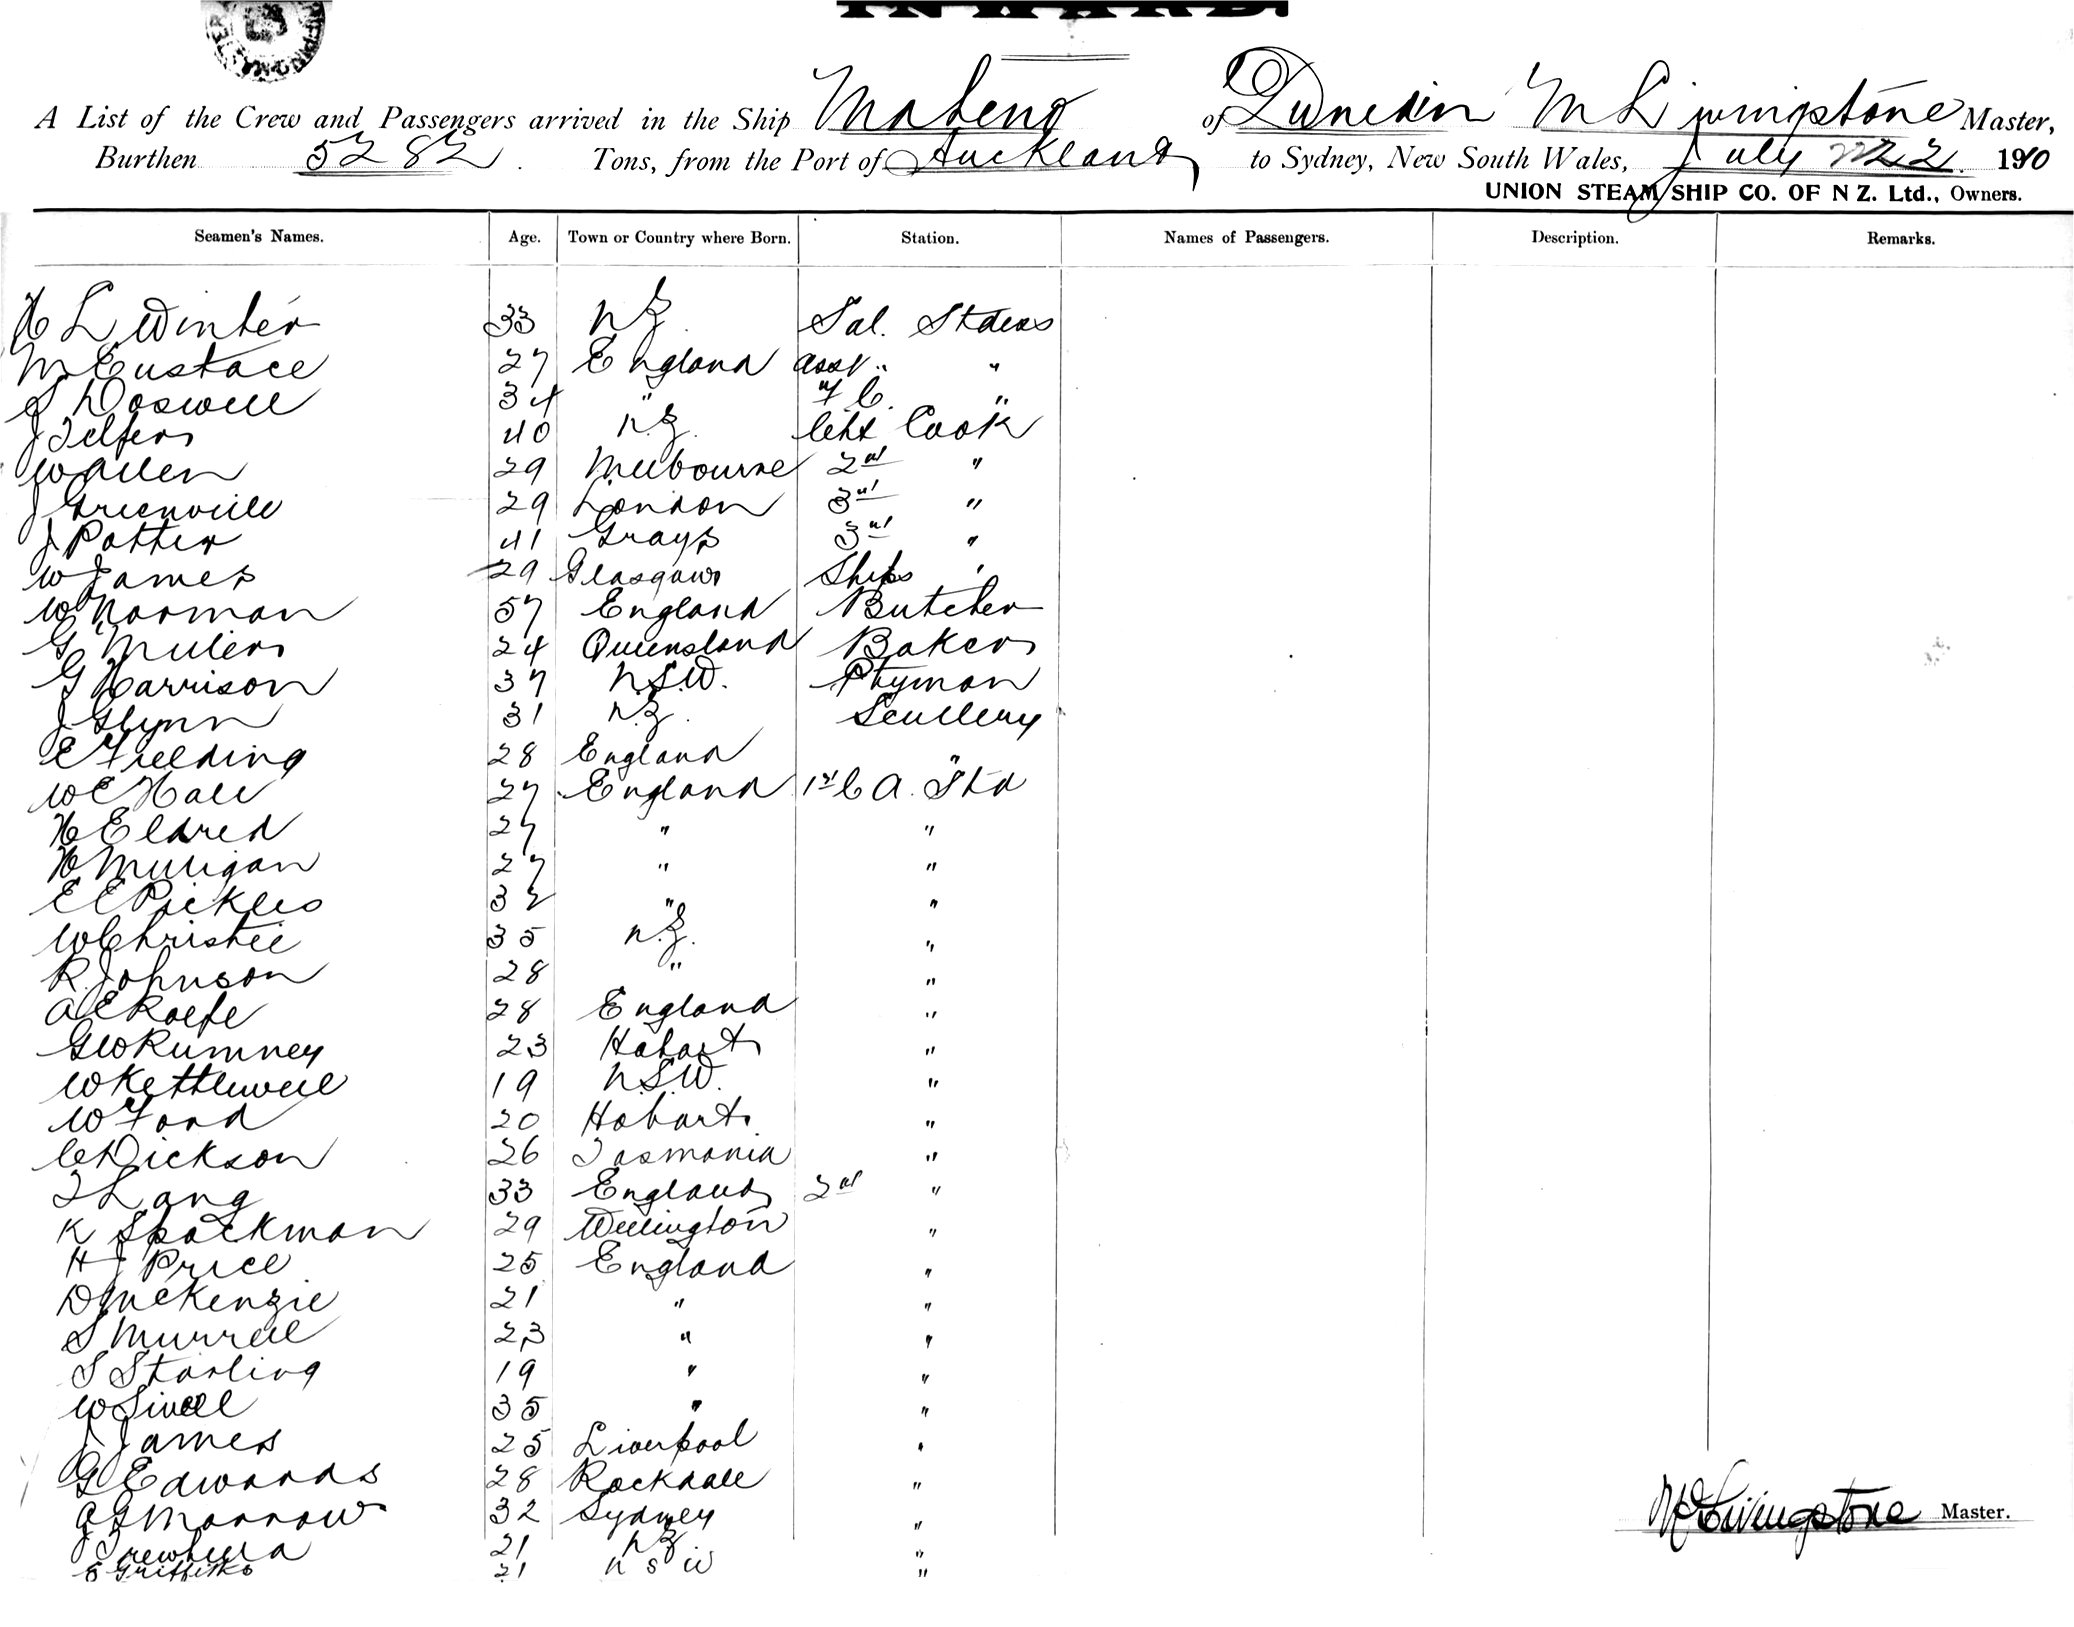 INWARD.
A List of the Crew and Passengers arrived in the Ship Maheno of Dunedin M Livingstone Master,
Burthen 5282 Tons, from the Port of Auckland to Sydney, New South Wales, July 22 1910
UNION STEAM SHIP CO. OF N Z. Ltd., Owners.
Seamen's Names. Age. Town or Country where Born. Station. Names of Passengers. Description. Remarks.
H L Winter 33 N Z. Sal. Stdess
M Eustace 27 England asst " "
S Doswell 34 " F C. "
J Telfer 40 N.Z. Chf Cook
W Allen 29 Melbourne 2nd "
J Greenville 29 London 3rd "
J Potter 41 Grays 3rd "
W James 29 Glasgow Ships "
W Norman 57 England Butcher
G Miller 24 Queensland Baker
G Harrison 37 N.S.W. Ptyman
J Glynn 31 N.Z. Scullery
E Fielding 28 England "
W E Hall 27 England 1st C A. Std
H Eldred 27 " "
H Mulligan 27 " "
E E Pickles 32 " "
W Christie 35 N.Z. "
R Johnson 28 " "
A E 28 England "
G W Rumney 23 Hobart "
W Kettlewell 19 N.S.W. "
W Ford 20 Hobart "
C Dickson 26 Tasmania "
T Lang 33 England 2nd "
K Spackman 29 Wellington "
H J Price 25 England "
D McKenzie 21 " "
S Murrell 23 " "
S Starling 19 " "
W 35 " "
J James 25 Liverpool "
G Edwards 28 Rockdale "
A G Morrow 32 Sydney "
J Trewhella 21 N Z "
E Griffiths 21 N S W "
M Livingstone Master.